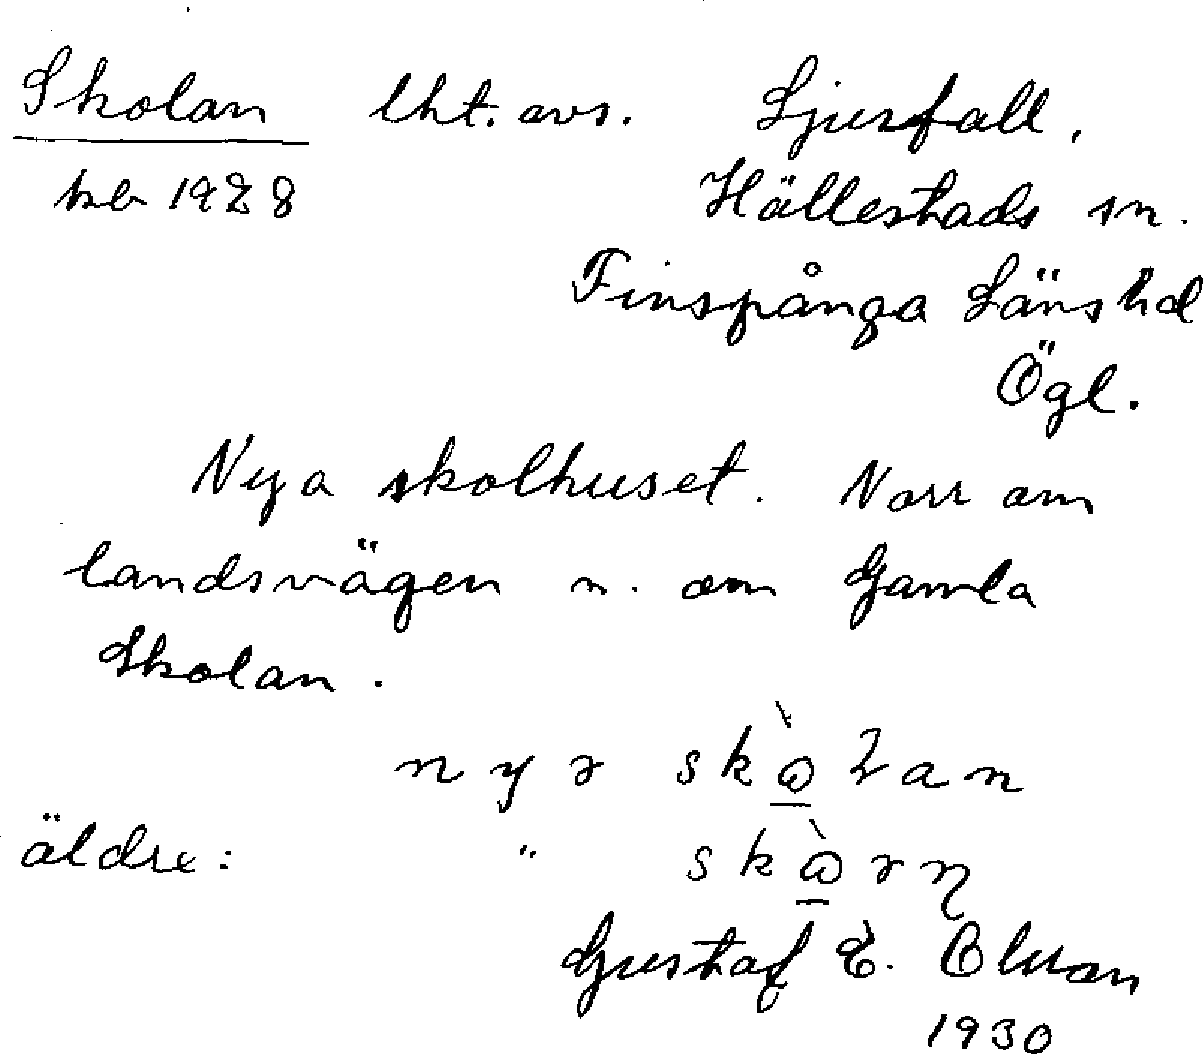 Skolan lht. avs. Ljusfall,
1928 Hällestads sn.
Finspånga Läns hd
Ögl.
Nya skolhuset. Norr om
landsvägen n. om Gamla
Skolan.
äldre: "
Gustaf E.
1930